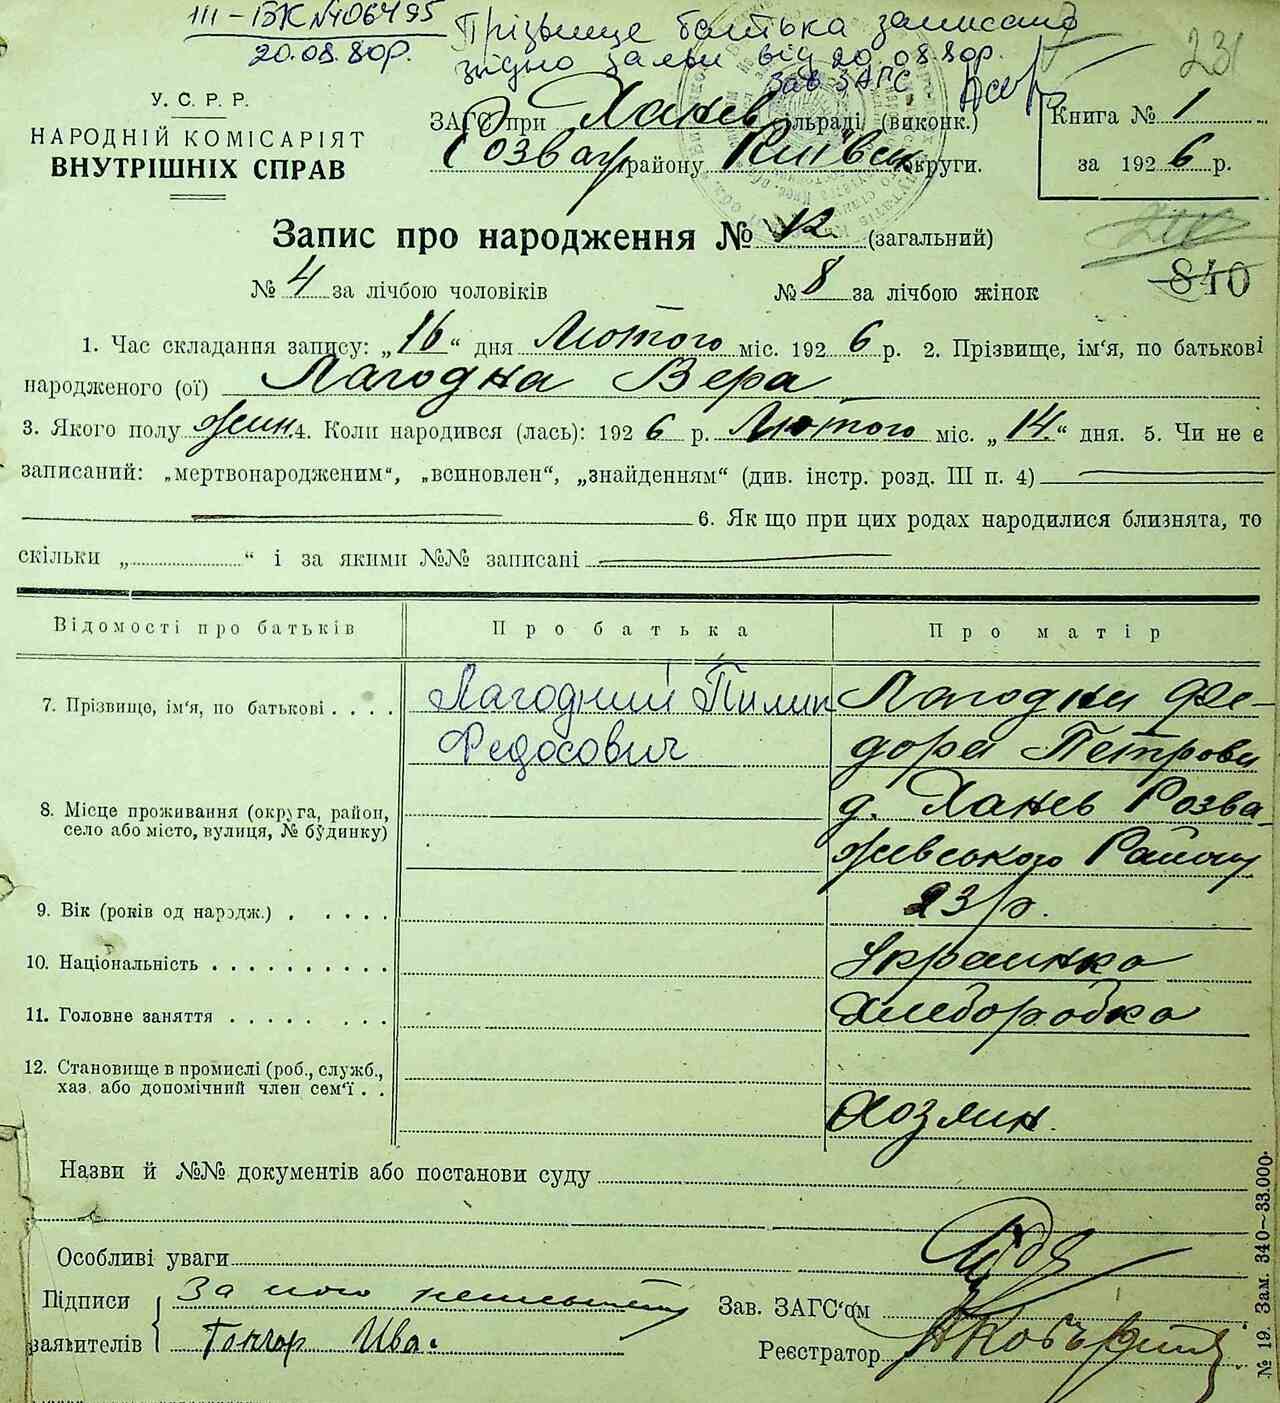 III – БК № 406495
20.08.80р.
Прізвище батька записано
згідно заяви від 20.08.80р.
Зав ЗАГС
231
У. С. Р. Р.
НАРОДНІЙ КОМІСАРІЯТ
ВНУТРІШНІХ СПРАВ
ЗАГС при Ханев сільраді (виконк.)
Розваж району Київськ округи.
Книга № 1
за 1926 р.
Запис про народження № 12 (загальний)
№ 4 за лічбою чоловіків № 8 за лічбою жінок
840
1. Час складання запису: „16“ дня Лютого міс. 1926 р. 2. Прізвище, ім‘я, по батькові
народженого (ої) Лагодна Вера
3. Якого полу жин. 4. Коли народився (лась): 1926 р. Лютого міс. „14.“ дня. 5. Чи не є
записаний: „мертвонародженим“, „всиновлен“, „знайденням“ (див. інстр. розд. III п. 4)
6. Як що при цих родах народилися близнята, то
скільки „ “ і за якими №№ записані
Відомості про батьків Про батька Про матір
7. Прізвище, ім‘я, по батькові . . . . Лагодний Пилип Лагодни Фе-
Федосович дора Петрови
8. Місце проживання (округа, район, д. Ханев Розва-
село або місто, вулиця, № будинку)
живського Району
9. Вік (років од народж.) . . . . . 23 р.
10. Національність . . . . . . . . . . Украинка
11. Головне заняття . . . . . . . . Хлеборобка
12. Становище в промислі (роб., служб.,
хаз. або допомічний член сем‘ї . .
Хозяин.
Назви й №№ документів або постанови суду
Особливі уваги
Підписи За
заявителів Гончар Ива.
Зав. ЗАГС‘ом
Реєстратор
№ 19. Зам. 340–33.000.